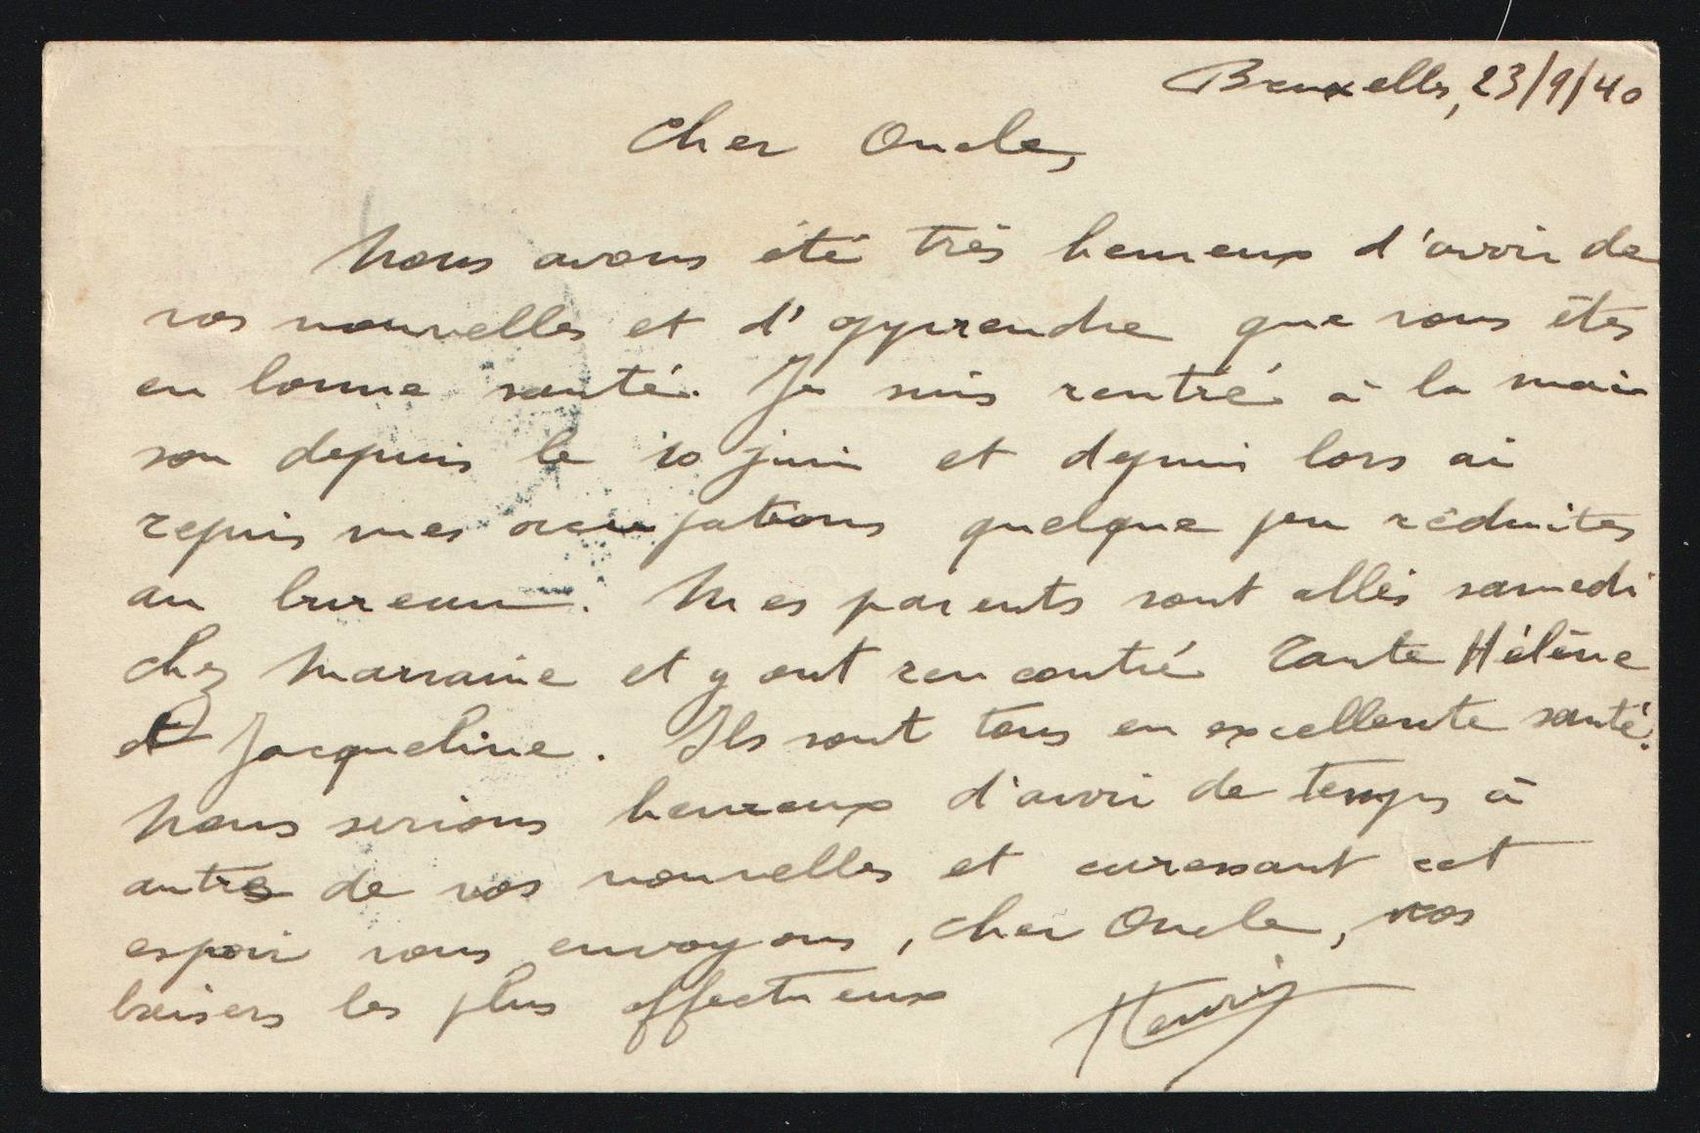 Bruxelles, 23/9/40
Cher Oncle,
Nous avons été très heureux d'avoir de
vos nouvelles et d'apprendre que vous êtes
en bonne santé. Je suis rentré à la mai
son depuis le 10 juin et depuis lors ai
repris mes occupations quelque peu réduites
au bureau. Mes parents sont allés samedi
chez Marraine et y ont rencontré Tante Hélène
et Jacqueline. Ils sont tous en excellente santé.
Nous serions heureux d'avoir de temps à
autre de vos nouvelles et caressant cet
espoir vous envoyons, cher Oncle, nos
baisers les plus affectueux
Henri